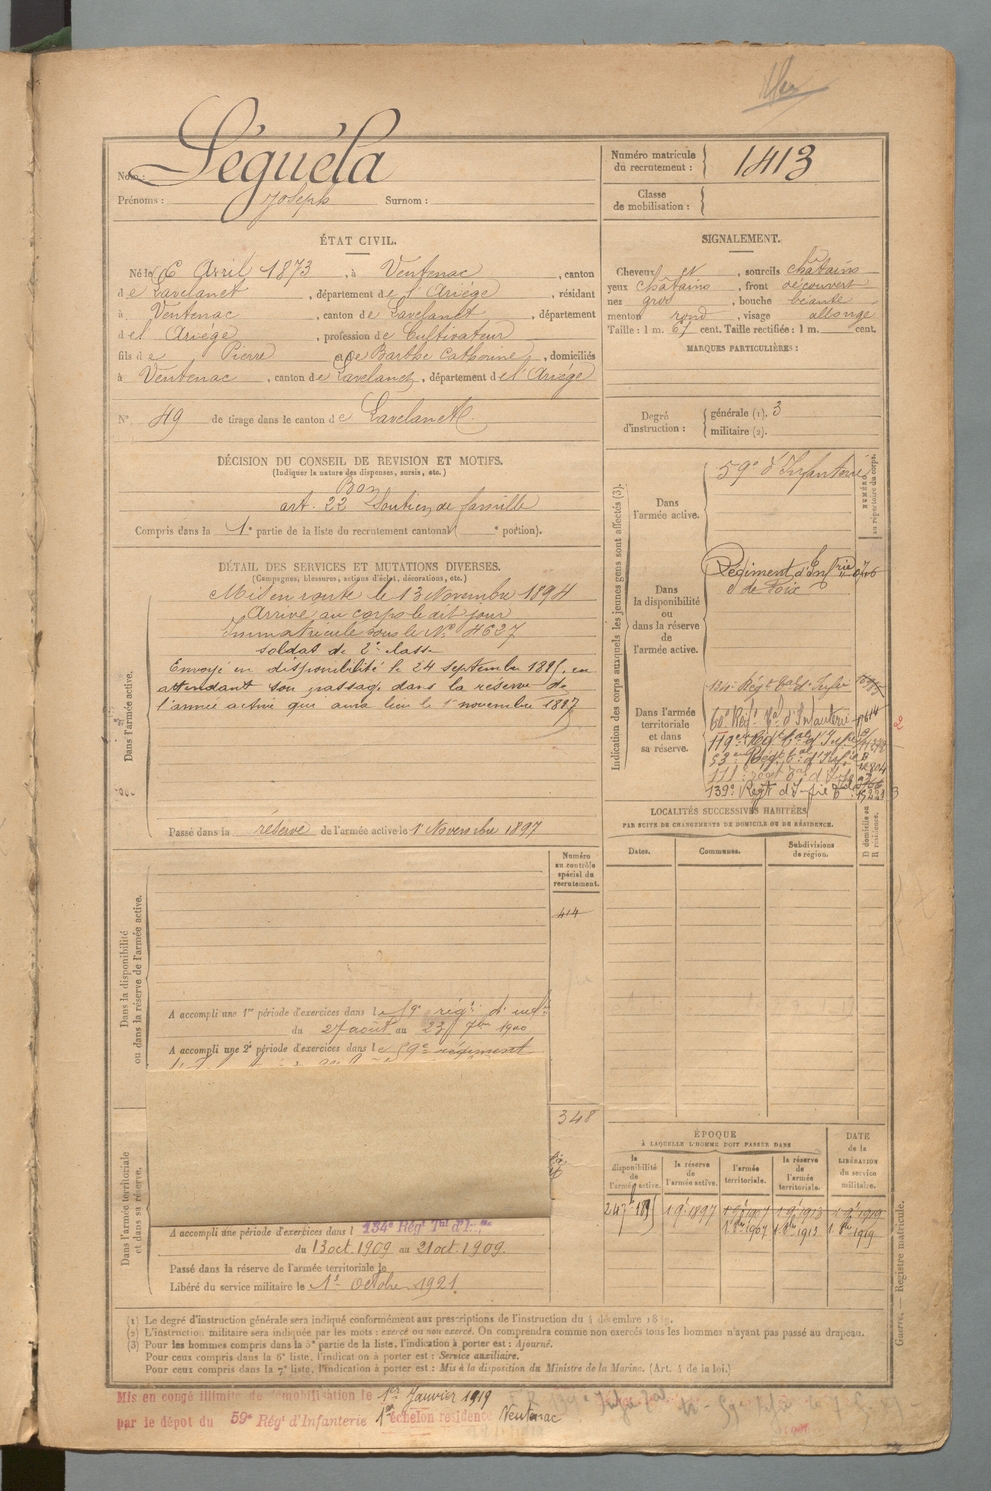 Nom : Séguéla
Prénoms : Joseph Surnom :
Numéro matricule du recrutement : 1413
Classe de mobilisation :
ÉTAT CIVIL.
Né le 6 Avril 1873, à Ventenac, canton
de Lavelanet, département de l'Ariége, résidant
à Ventenac, canton de Lavelanet, département
de l'Ariége, profession de Cultivateur
fils de Pierre et de Barthe Catherine, domiciliés
à Ventenac, canton de Lavelanet, département de l'Ariége
N° 49 de tirage dans le canton de Lavelanet.
SIGNALEMENT.
Cheveux et, sourcils châtains
yeux châtains, front découvert
nez gros, bouche béante
menton rond, visage allongé
Taille : 1 m. 67 cent. Taille rectifiée : 1 m. cent.
MARQUES PARTICULIÈRES :
Degré d'instruction : générale (1). 3
militaire (2).
DÉCISION DU CONSEIL DE REVISION ET MOTIFS.
(Indiquer la nature des dispenses, sursis, etc.)
Bon
art. 22 Soutien de famille
Compris dans la 1e partie de la liste du recrutement cantonal ( e portion).
DÉTAIL DES SERVICES ET MUTATIONS DIVERSES.
(Campagnes, blessures, actions d'éclat, décorations, etc.)
Dans l'armée active.
Mis en route le 13 Novembre 1894
Arrivé au corps le dit jour
Immatriculé sous le N° 4637
soldat de 2e classe
Envoyé en disponibilité le 24 septembre 1895, en
attendant son passage dans la réserve de
l'armée active qui aura lieu le 1er novembre 1897
Passé dans la réserve de l'armée active le 1er Novembre 1897
Indication des corps auxquels les jeunes gens sont affectés (3).
NUMÉRO au répertoire du corps.
Dans l'armée active.
59e d'Infanterie
Dans la disponibilité ou dans la réserve de l'armée active.
Régiment d'Infrie
de Foix
Dans l'armée territoriale et dans sa réserve.
134e Régt tal d'Infrie
60e Régt tal d'Infanterie
119e Régt tal d'Infrie
53e Régt tal d'Infrie
111e régt tal d'Infie
139e Régt d'Infrie
LOCALITÉS SUCCESSIVES HABITÉES
PAR SUITE DE CHANGEMENTS DE DOMICILE OU DE RÉSIDENCE.
D domicile ou R résidence.
Dates. Communes. Subdivisions de région.
Numéro au contrôle spécial du recrutement.
414
348
Dans la disponibilité ou dans la réserve de l'armée active.
A accompli une 1re période d'exercices dans le 59e régt d'infie
du 27 août au 23 7bre 1900
A accompli une 2e période d'exercices dans le 59e régiment
Dans l'armée territoriale et dans sa réserve.
A accompli une période d'exercices dans l 134e Régt Tal d'Infie
du 13 oct. 1909 au 21 oct. 1909.
Passé dans la réserve de l'armée territoriale le
Libéré du service militaire le 1er Octobre 1921.
ÉPOQUE
À LAQUELLE L'HOMME DOIT PASSER DANS
DATE de la LIBÉRATION du service militaire.
la disponibilité de l'armée active. la réserve de l'armée active. l'armée territoriale. la réserve de l'armée territoriale.
24 7bre 1895 1 9bre 1897 1 9bre 1907 1 9bre 1913 1 9bre 1919
1 8bre 1907 1 8bre 1913 1 8bre 1919
Guerre. — Registre matricule.
(1) Le degré d'instruction générale sera indiqué conformément aux prescriptions de l'instruction du 4 décembre 1889.
(2) L'instruction militaire sera indiquée par les mots : exercé ou non exercé. On comprendra comme non exercés tous les hommes n'ayant pas passé au drapeau.
(3) Pour les hommes compris dans la 5e partie de la liste, l'indication à porter est : Ajourné.
Pour ceux compris dans la 6e liste, l'indication à porter est : Service auxiliaire.
Pour ceux compris dans la 7e liste, l'indication à porter est : Mis à la disposition du Ministre de la Marine. (Art. 4 de la loi.)
Mis en congé illimité de démobilisation le 1er Janvier 1919
par le dépot du 59e Régt d'Infanterie 1er échelon residence Ventenac